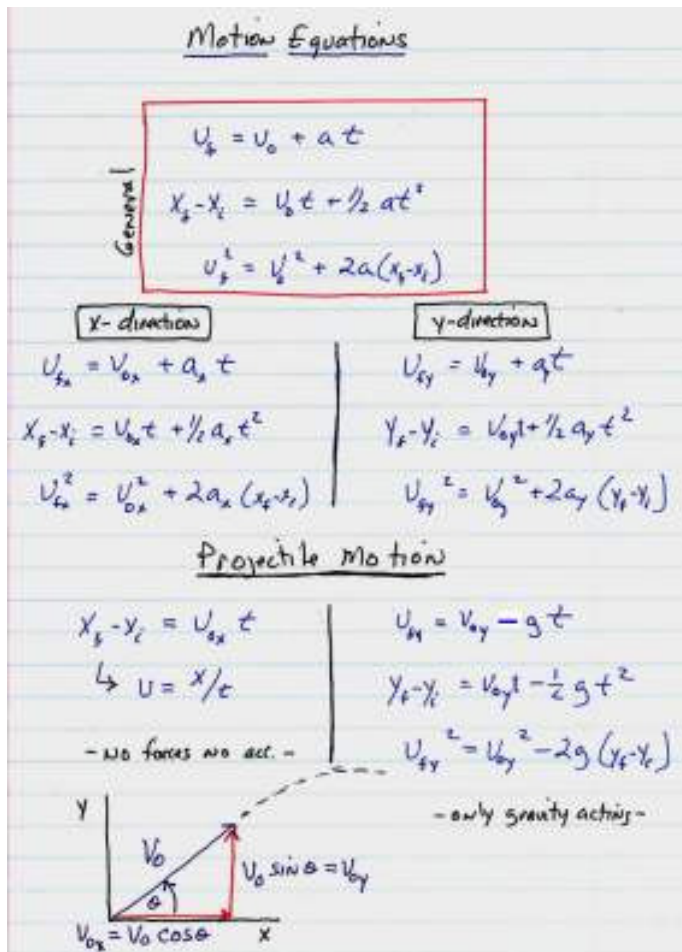 Motion Equations
General
v_f = v_0 + a t
x_f - x_i = v_0 t + 1/2 at²
v_f² = v_0² + 2a(x_f - x_i)
x-direction
v_fx = v_0x + a_x t
x_f - x_i = v_0x t + 1/2 a_x t²
v_fx² = v_0x² + 2a_x (x_f - x_i)
y-direction
v_fy = v_0y + a_y t
y_f - y_i = v_0y t + 1/2 a_y t²
v_fy² = v_0y² + 2a_y (y_f - y_i)
Projectile Motion
x_f - x_i = v_0x t
↳ v = x/t
- No forces no acc. -
v_fy = v_0y - g t
y_f - y_i = v_0y t - 1/2 g t²
v_fy² = v_0y² - 2g (y_f - y_i)
- only gravity acting -
y
v_0
θ
v_0 sin θ = v_0y
v_0x = v_0 cos θ
x